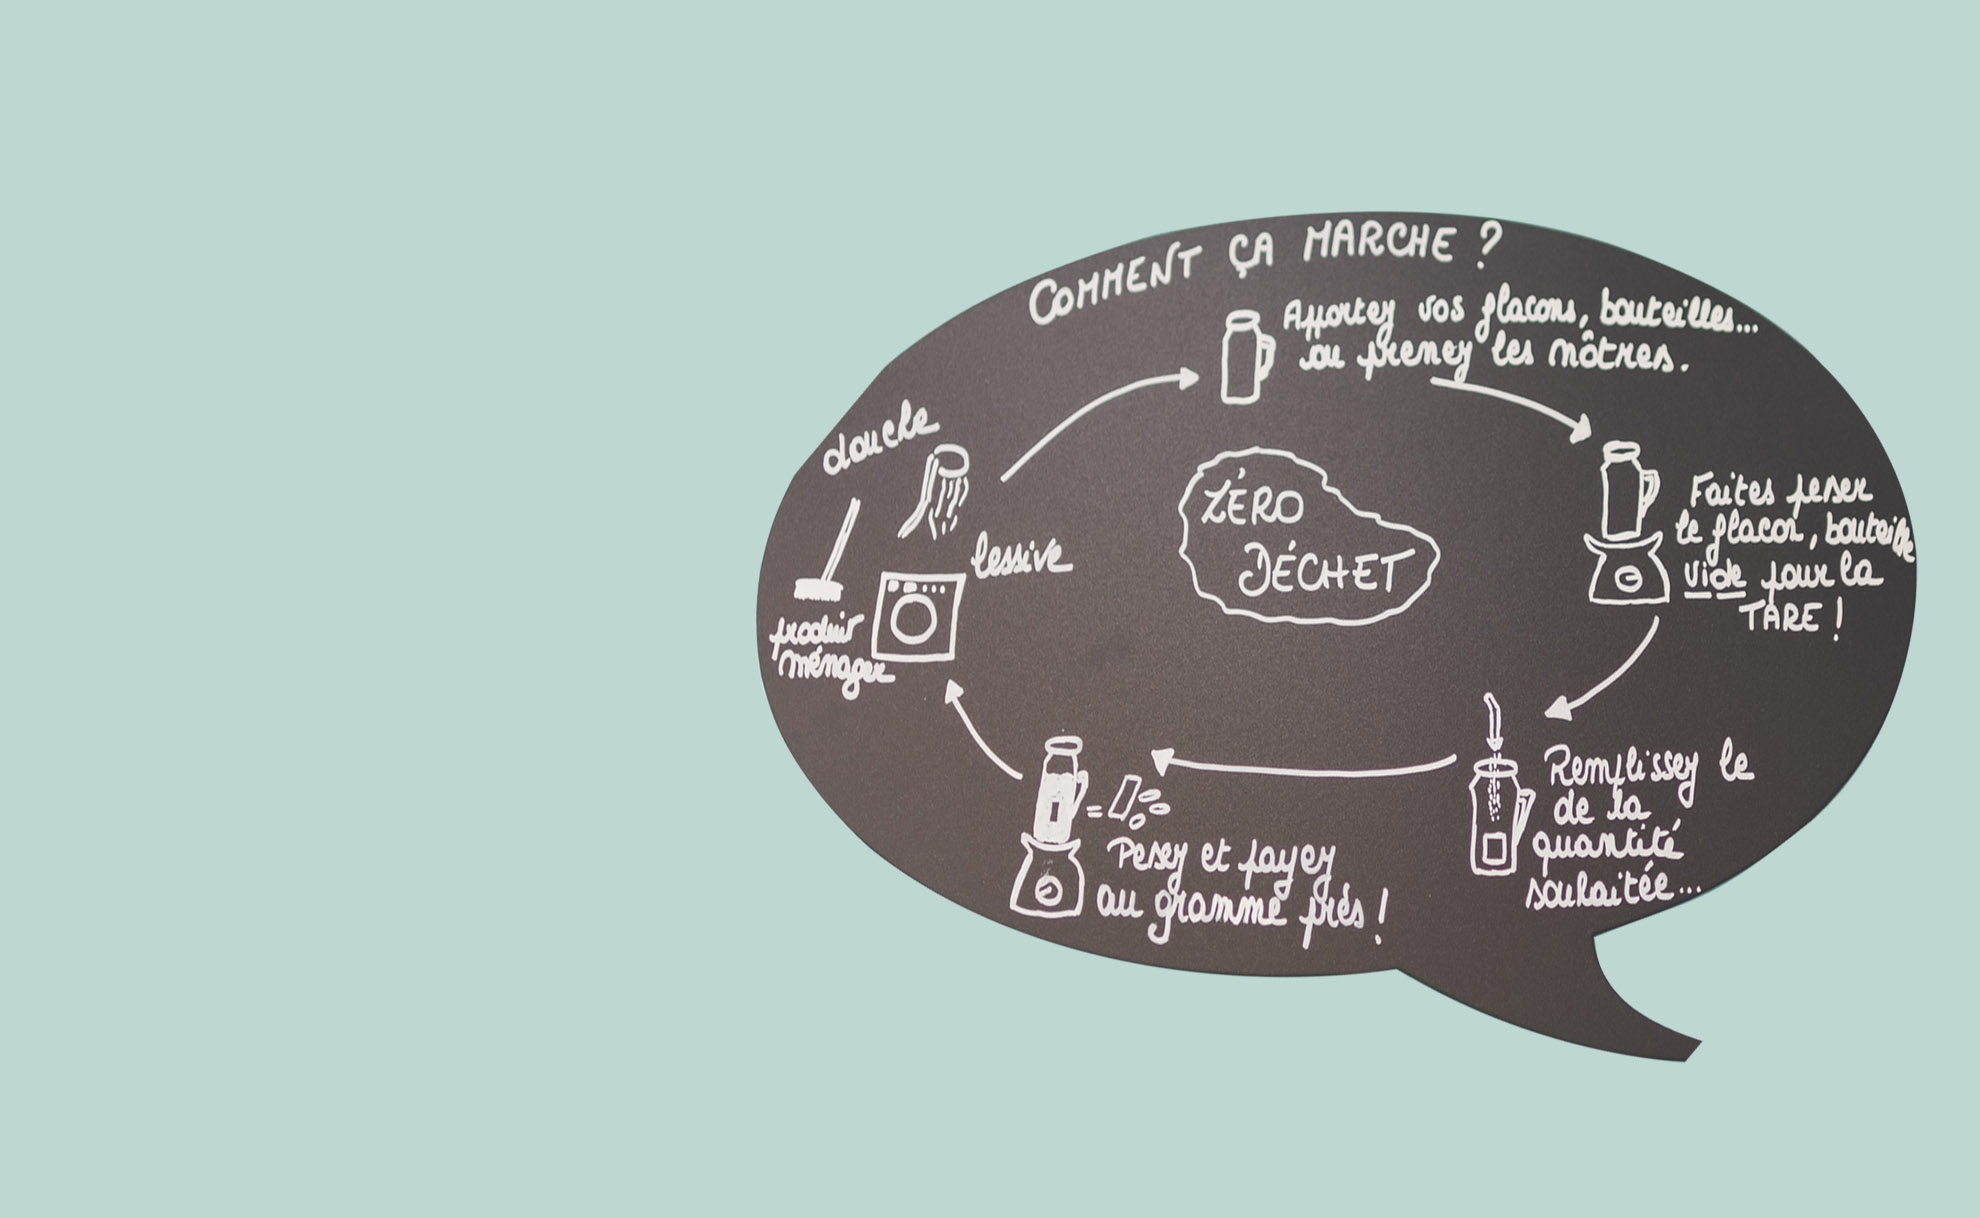 COMMENT ÇA MARCHE ?
Apportez vos flacons, bouteilles...
ou prenez les nôtres.
Faites peser
le flacon, bouteille
vide pour la
TARE !
Remplissez le
de la
quantité
souhaitée...
Pesez et payez
au gramme près !
douche
lessive
produit
ménager
ZÉRO
DÉCHET